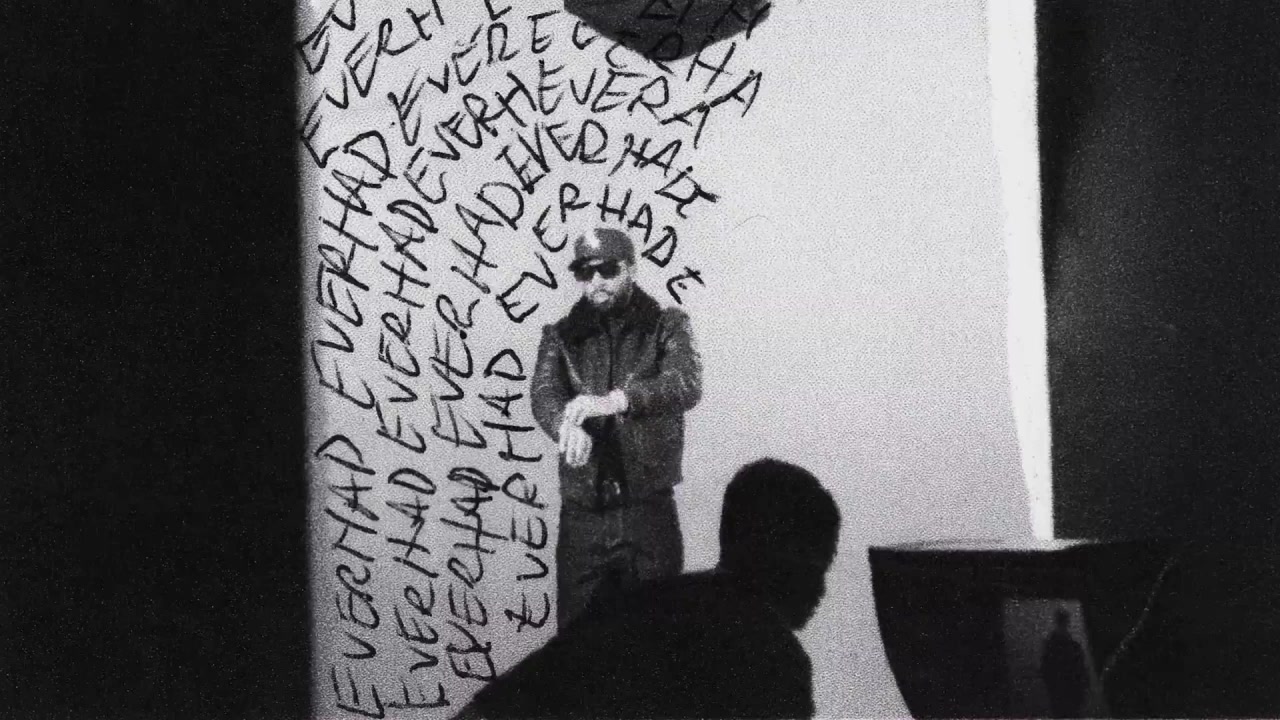 EV
EVERH E
EVERHAD EVERHAD EVERE
EVERHAD EVERHAD EVERHEVERA
EVERHAD EVERHADEVERHADE
EVERHAD EVERHADE